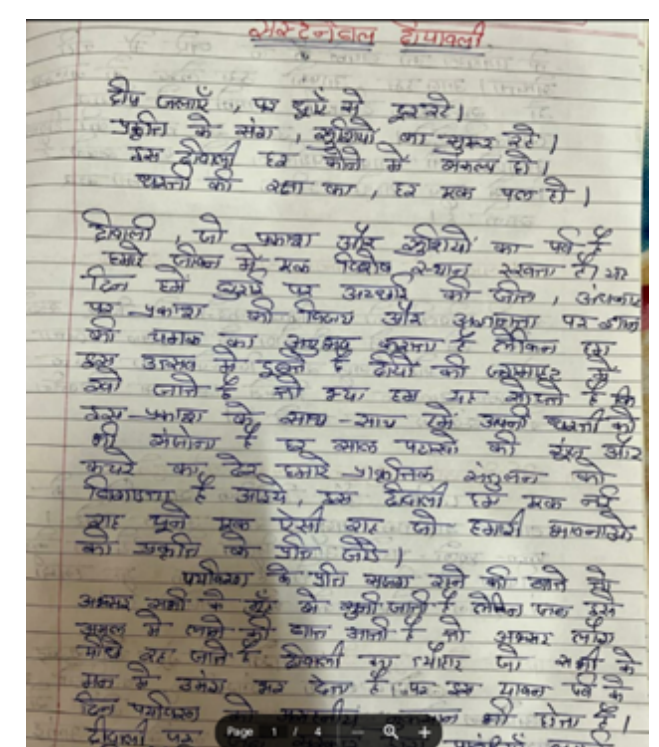 सस्टेनेबल दीपावली
दीप जलाएँ, पर धुएँ से दूर रहे।
प्रकृति के संग, खुशियों का सुमर रहे।
इस दीवाली हर कोने में संकल्प हो।
धरती की रक्षा का, हर एक पल हो।
दीवाली, जो प्रकाश और खुशियों का पर्व है
हमारे जीवन में एक विशेष स्थान रखता है। यह
दिन हमें बुराई पर अच्छाई की जीत, अंधकार
पर प्रकाश की विजय और अज्ञानता पर ज्ञान
की चमक का अनुभव कराता है लेकिन हम
इस उत्सव में डूबते है दीयों की जगमगाहट में
खो जाते है तो क्या हम यह सोचते है कि
इस प्रकाश के साथ-साथ हमें अपनी धरती को
भी संजोना है हर साल पटाखों की और
कचरे का ढेर हमारे प्राकृतिक संतुलन को
बिगाड़ता है आइये, इस दीवाली हम एक नई
राह चुने एक ऐसी राह जो हमारी भावनाओं
को प्रकृति के प्रति जोड़े।
पर्यावरण के प्रति सजग होने की बाते हमें
अक्सर सभी के मुँह से सुनी जाती है लेकिन जब इस
अमल में लाने की बात आती है तो अक्सर लोग
पीछे रह जाते है दीवाली का त्योहार जो सभी के
मन में उमंग भर देता है। पर इस पावन पर्व के
दिन पर्यावरण को नुकसान भी होता है।
दीवाली पर
Page 1 / 4 − +